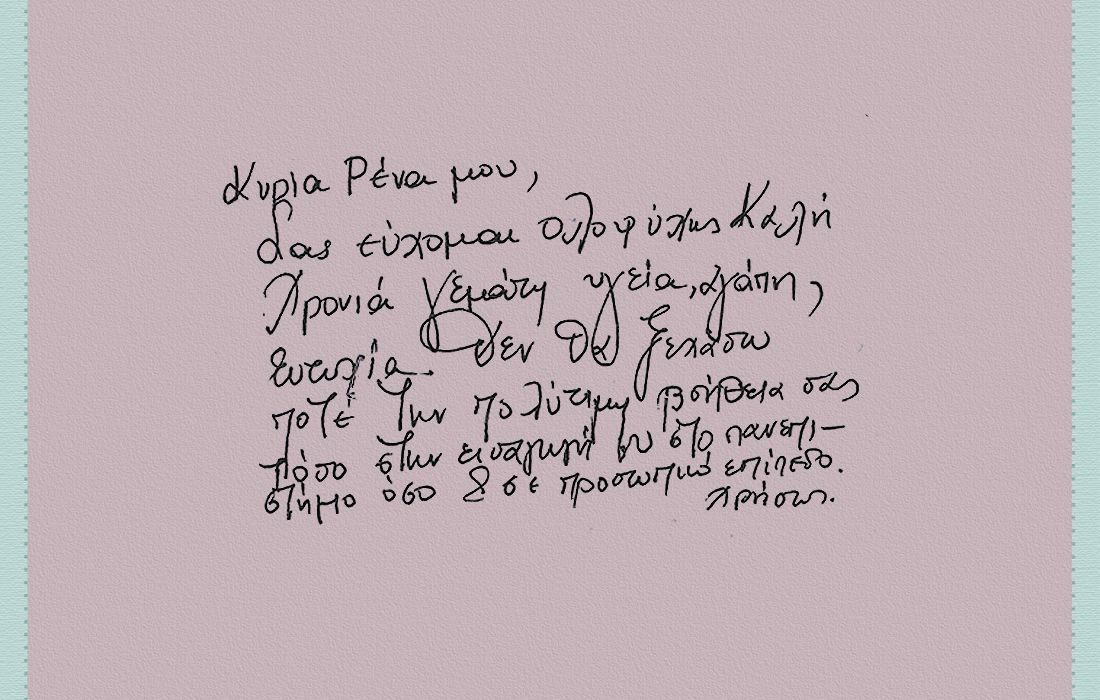 Κυρία Ρένα μου,
σας εύχομαι ολοψύχως Καλή
Χρονιά γεμάτη υγεία, αγάπη,
ευτυχία. Δεν θα ξεχάσω
ποτέ την πολύτιμη βοήθεια σας
τόσο στην εισαγωγή μου στο πανεπι-
στήμιο όσο & σε προσωπικό επίπεδο.
Χρήστος.